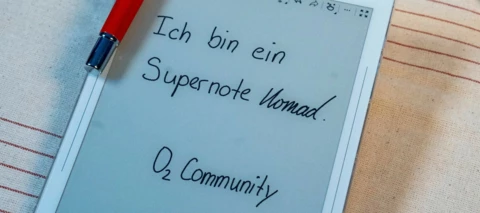 Ich bin ein
Supernote Nomad.
O₂ Community